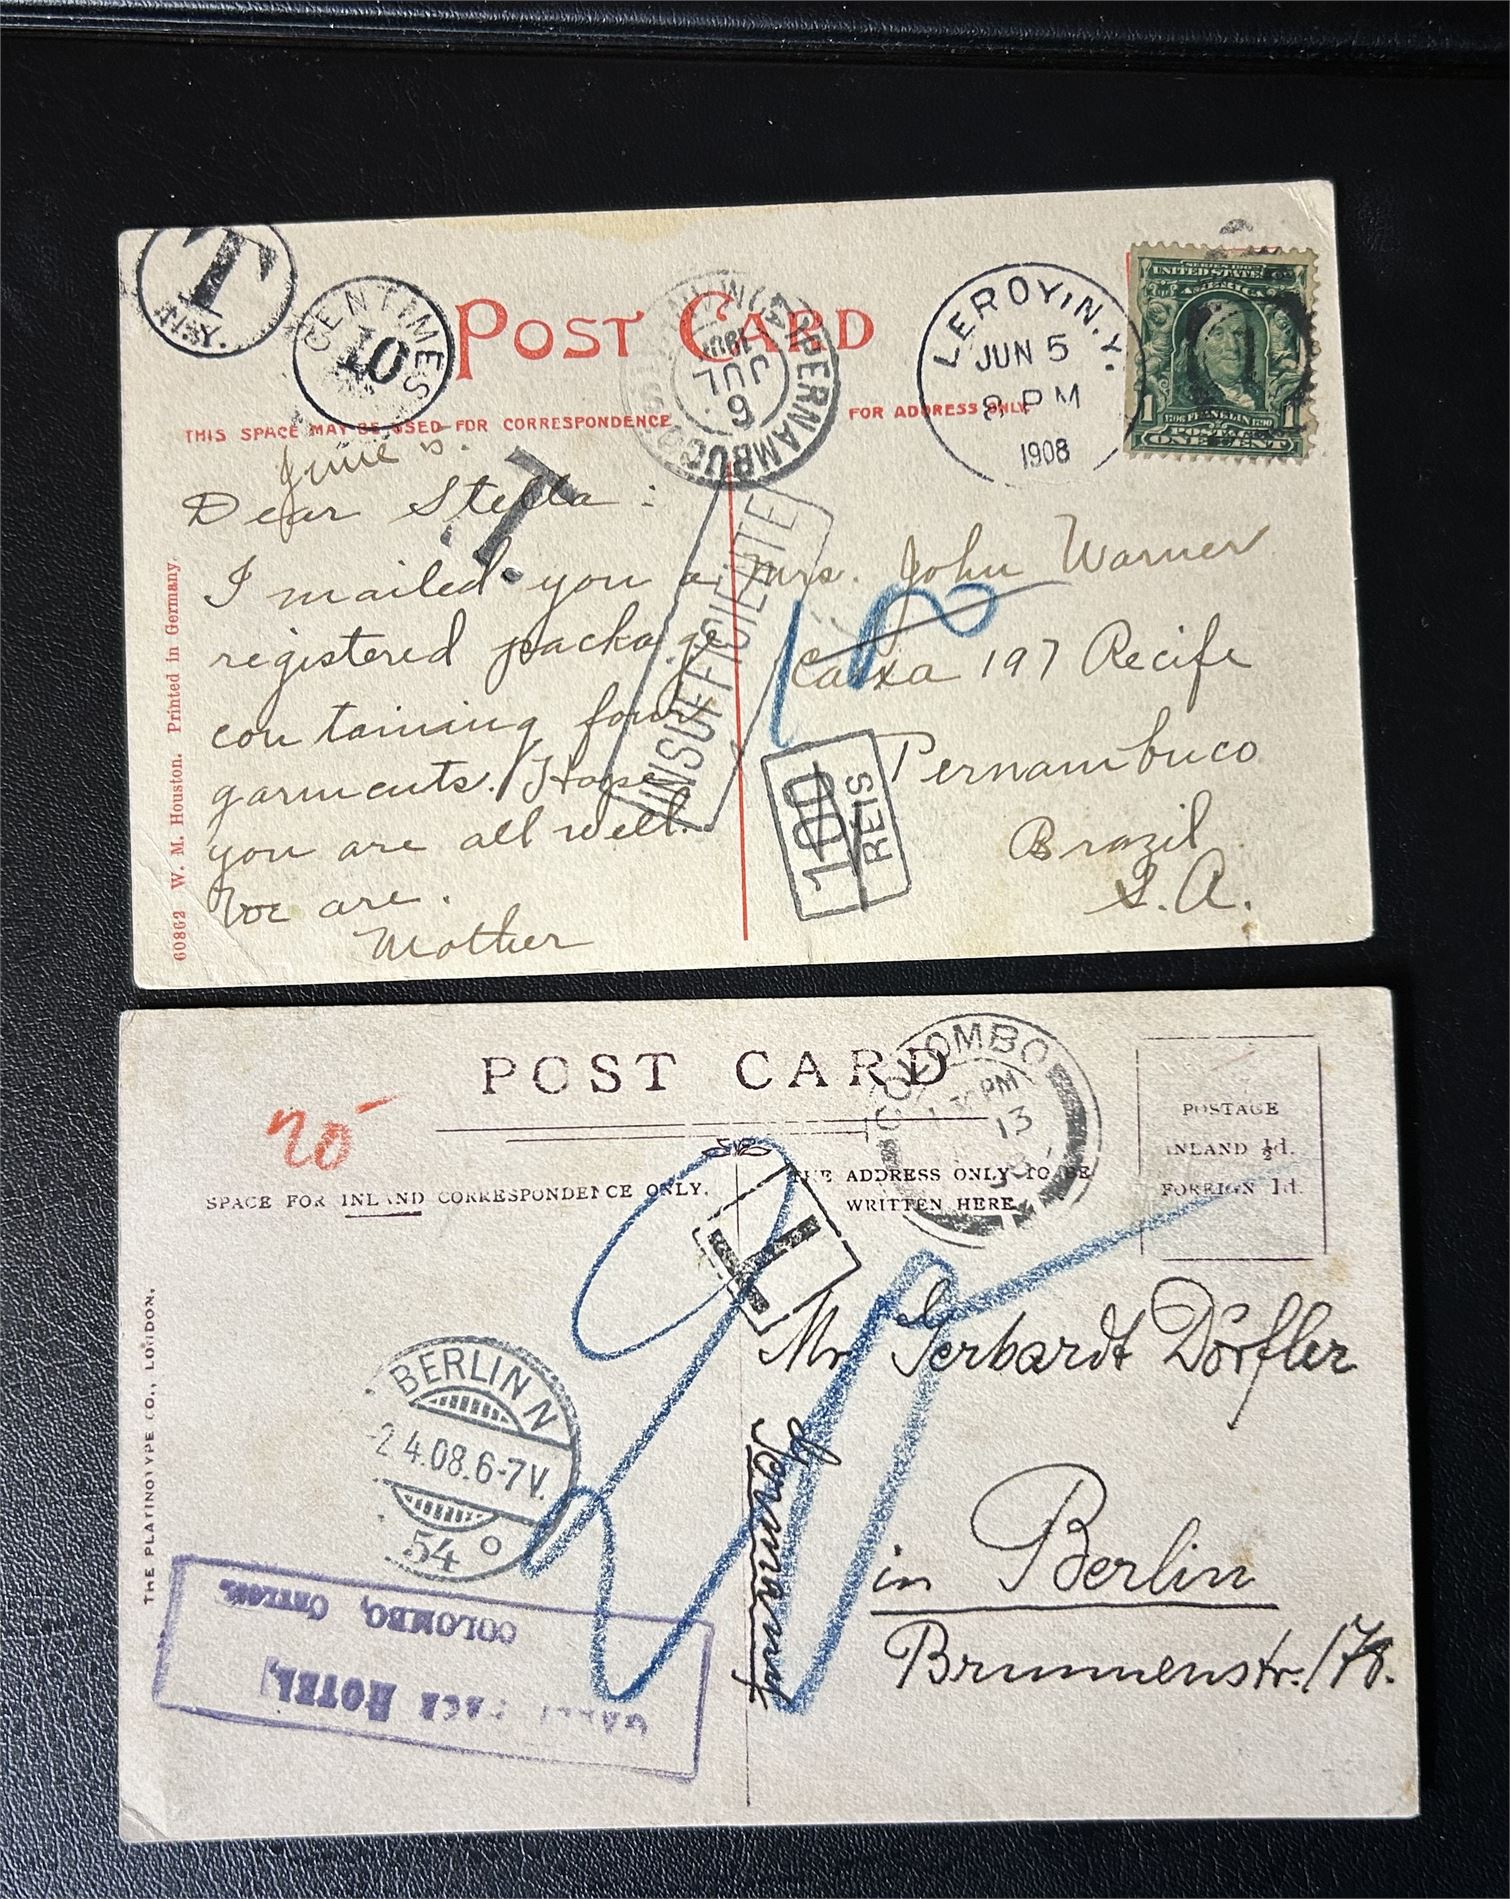 T
N.Y.
CENTIMES
10
POST CARD
PERNAMBUCO
6
JUL
LEROY, N.Y.
JUN 5
8 PM
1908
SERIES 1902
UNITED STATES OF
AMERICA
1 1706 FRANKLIN 1790 1
POSTAGE
ONE CENT
THIS SPACE MAY BE USED FOR CORRESPONDENCE
FOR ADDRESS ONLY
June 5.
Dear Stella:
T.
I mailed you a
registered package
containing four
garments. Hope
you are all well.
We are.
Mother
INSUFFICIENTE
Mrs. John Warner
Caixa 197 Recife
Pernambuco
Brazil
S.A.
100
REIS
60862 W. M. Houston. Printed in Germany.
POST CARD
COLOMBO
PM
13
POSTAGE
INLAND ½d.
FOREIGN 1d.
20
SPACE FOR INLAND CORRESPONDENCE ONLY.
THE ADDRESS ONLY TO BE
WRITTEN HERE
T
20
Mr Gerhardt Dörfler
in Berlin
Brunnenstr. 178.
Germany
BERLIN N
-2.4.08.6-7V.
54 o
THE PLATINOTYPE CO., LONDON.
GALLE FACE HOTEL,
COLOMBO, CEYLON.